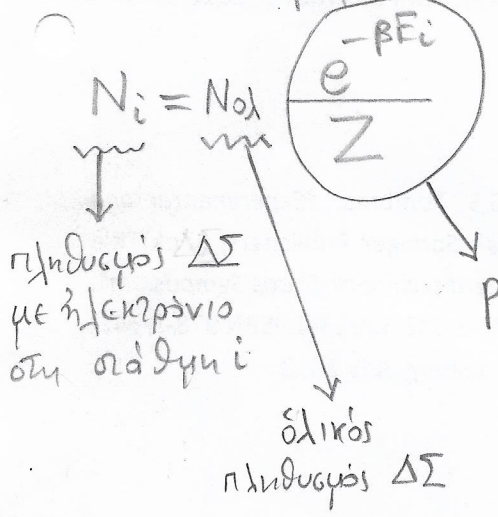 Nᵢ = Nολ e^{-βEᵢ} / Z
P
πληθυσμός ΔΣ
με ἠλεκτρόνιο
στη στάθμη i
ὁλικός
πληθυσμός ΔΣ